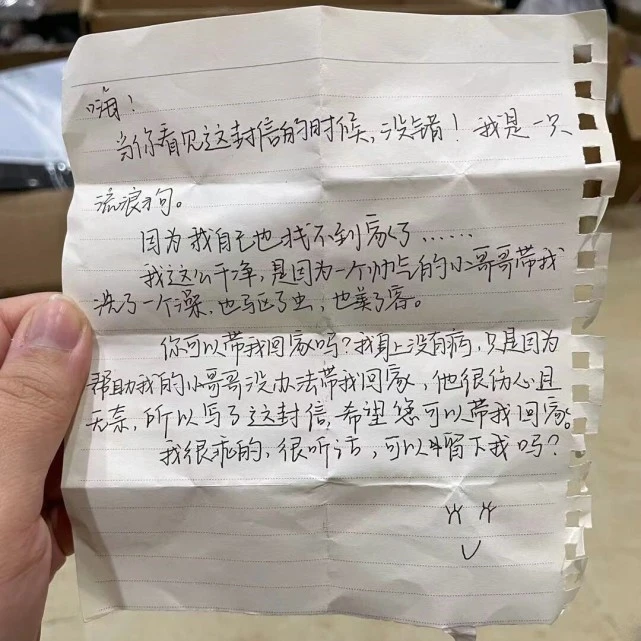 嗨!
当你看见这封信的时候,没错!我是一只
流浪狗。
因为我自己也找不到家了......
我这么干净,是因为一个帅气的小哥哥带我
洗了一个澡,也驱了虫,也美了容。
你可以带我回家吗?我身上没有病,只是因为
帮助我的小哥哥没办法带我回家,他很伤心且
无奈,所以写了这封信,希望您可以带我回家。
我很乖的,很听话,可以留下我吗?